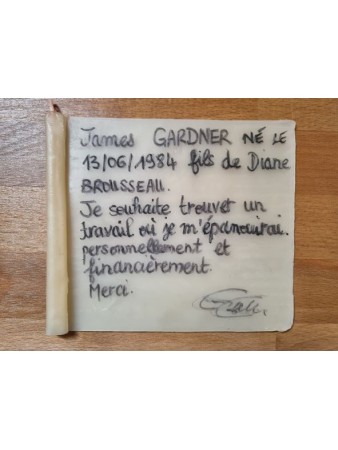 James GARDNER NÉ LE
13/06/1984 fils de Diane
BROUSSEAU.
Je souhaite trouver un
travail où je m'épanouirai.
personnellement et
financièrement.
Merci.